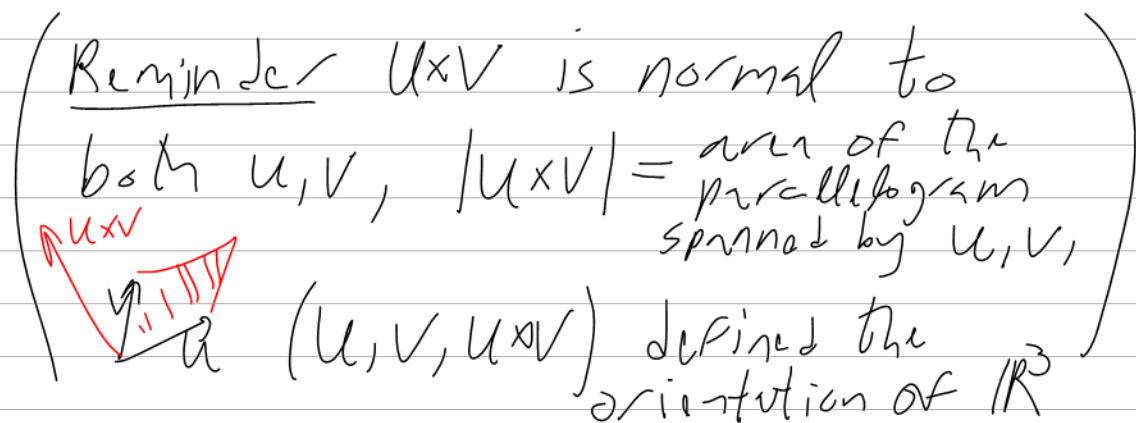 Reminder u×v is normal to
both u,v, |u×v| = area of the
parallelogram
spanned by u,v,
u×v
v
u (u,v,u×v) defined the
orientation of ℝ³